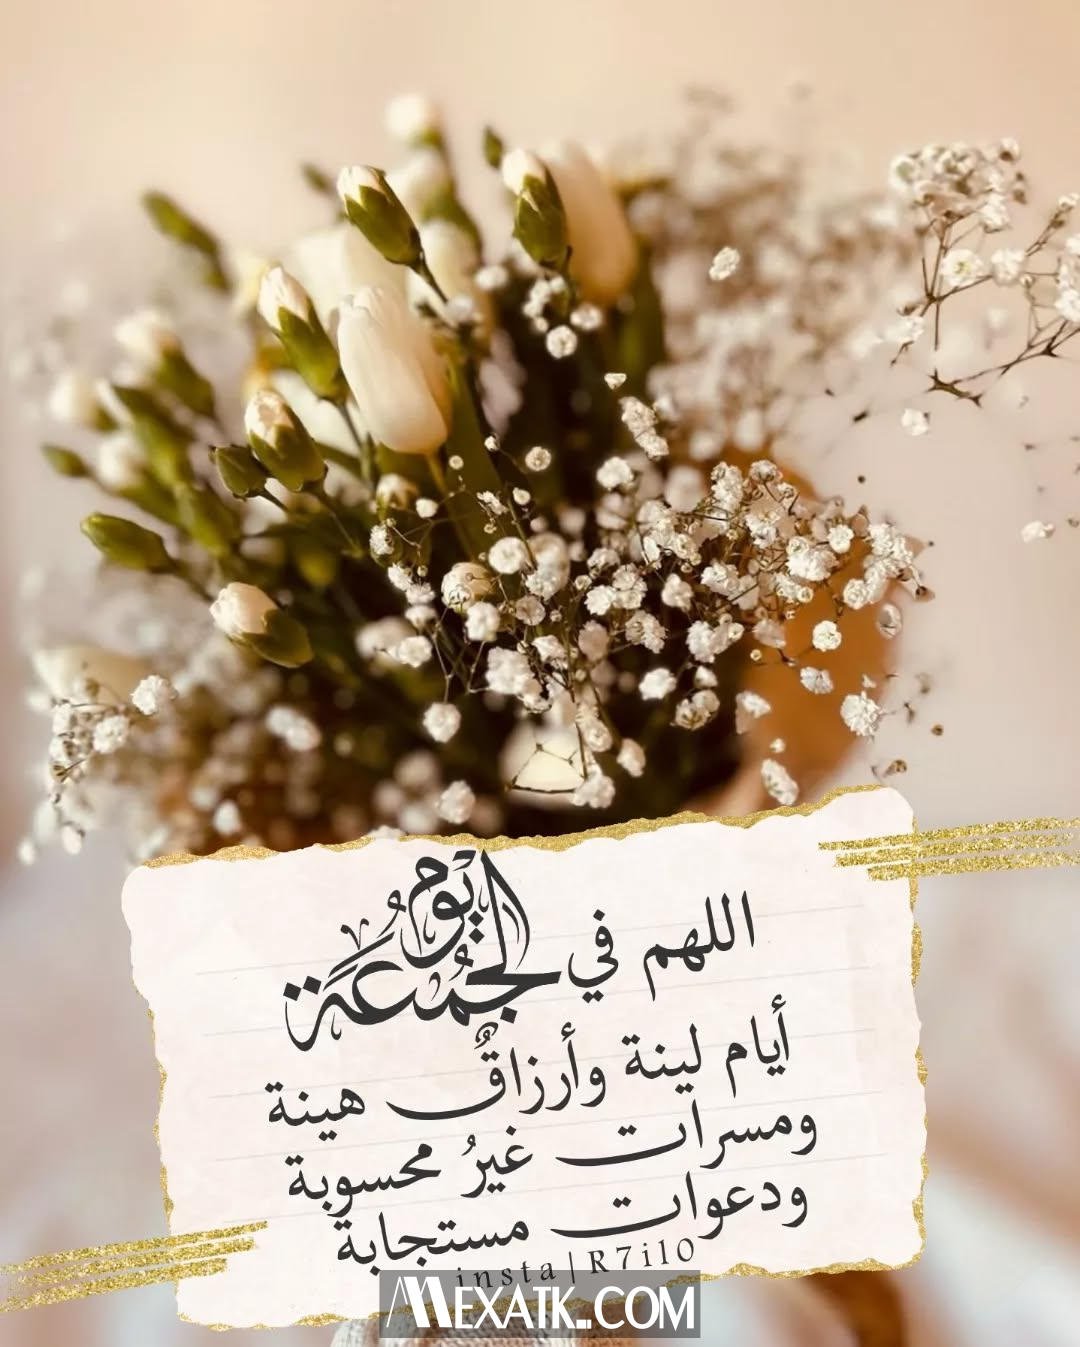 اللهم في يوم الجُمُعَة
أيام لينة وأرزاقٌ هينة
ومسرات غيرُ محسوبة
ودعوات مستجابة
insta|R7il0
MEXATK.COM